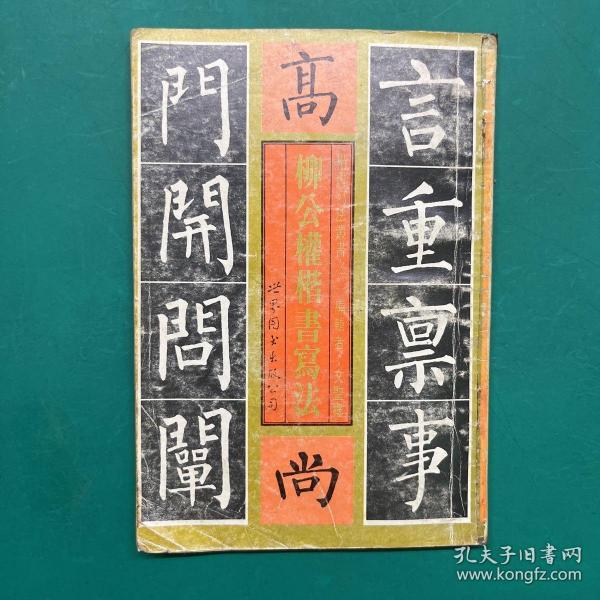 言重稟事
高
尚
書法叢書
柳公權楷書寫法
世界图书出版公司
門開問闡
孔夫子旧书网
www.kongfz.com